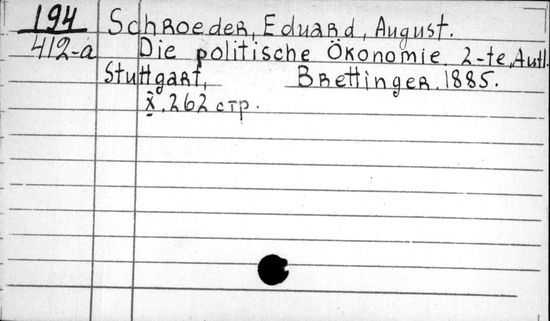 194 Schroeder, Eduard, August.
412-a Die politische Ökonomie. 2-te, Autl.
Stuttgart, Brettinger. 1885.
X, 262 стр.